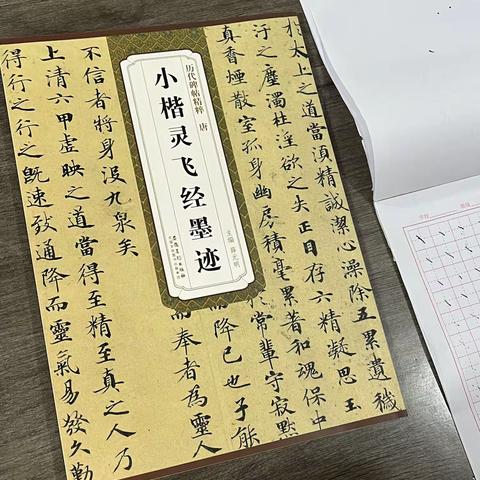 历代碑帖精粹 唐
小楷灵飞经墨迹
主编 薛元明
於太上之道當須精誠潔心澡除五累遺穢
汙之塵濁杜淫欲之失正目存六精凝思玉
真香煙散室孤身幽房積毫累著和魂保中
於常輩守寂默
而降已也子能
而奉者為靈人
不信者將身沒九泉矣
上清六甲虛映之道當得至精至真之人乃
得行之行之既速致通降而靈氣易發久勤